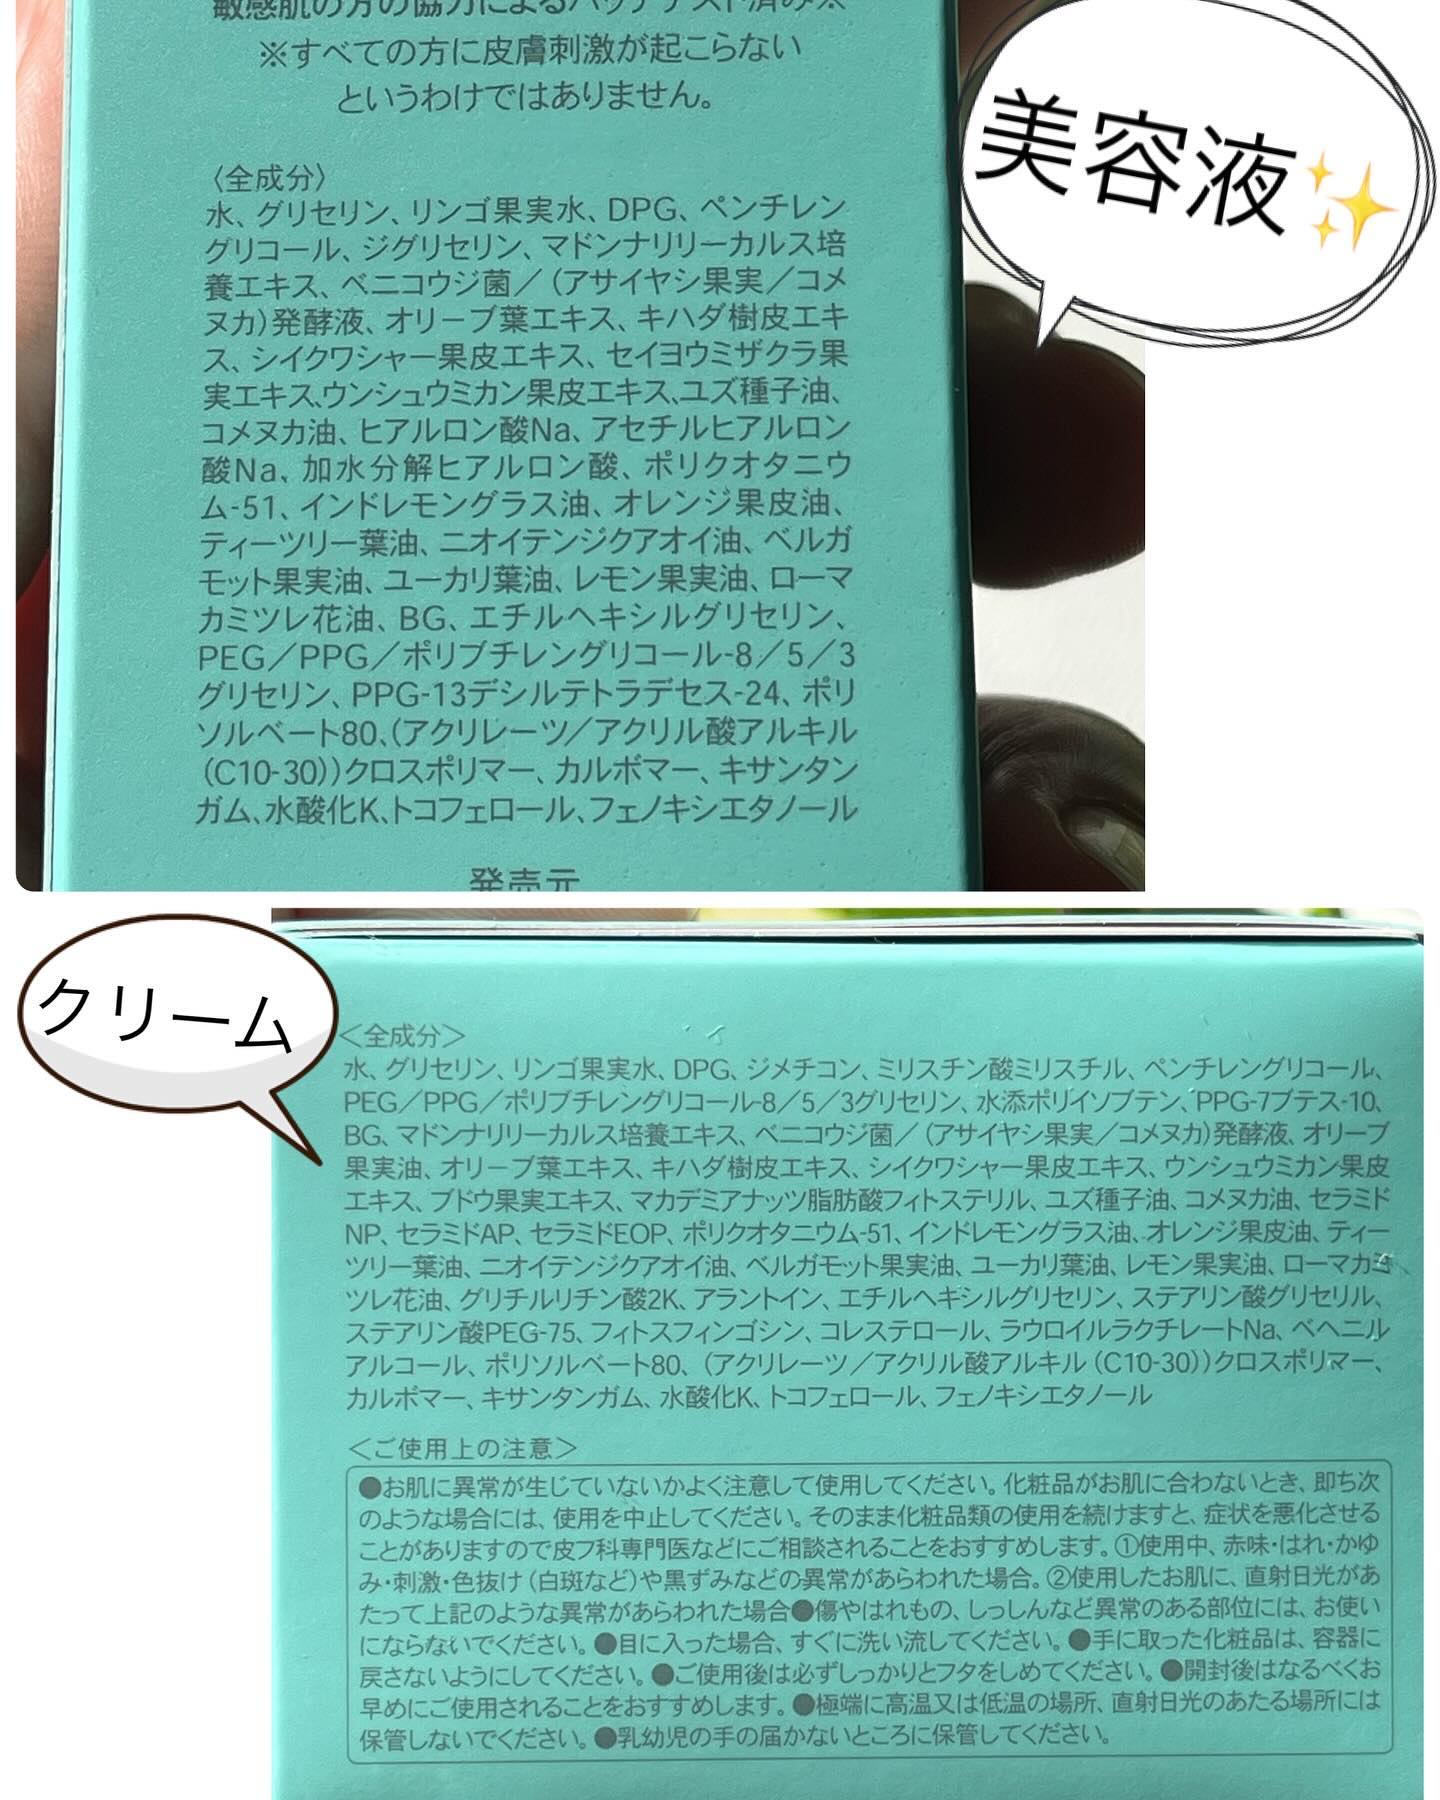 敏感肌の方の協力によるパッチテスト済み※
※すべての方に皮膚刺激が起こらない
というわけではありません。
〈全成分〉
水、グリセリン、リンゴ果実水、DPG、ペンチレン
グリコール、ジグリセリン、マドンナリリーカルス培
養エキス、ベニコウジ菌／（アサイヤシ果実／コメ
ヌカ）発酵液、オリーブ葉エキス、キハダ樹皮エキ
ス、シイクワシャー果皮エキス、セイヨウミザクラ果
実エキス、ウンシュウミカン果皮エキス、ユズ種子油、
コメヌカ油、ヒアルロン酸Na、アセチルヒアルロン
酸Na、加水分解ヒアルロン酸、ポリクオタニウ
ム-51、インドレモングラス油、オレンジ果皮油、
ティーツリー葉油、ニオイテンジクアオイ油、ベルガ
モット果実油、ユーカリ葉油、レモン果実油、ローマ
カミツレ花油、BG、エチルヘキシルグリセリン、
PEG／PPG／ポリブチレングリコール-8／5／3
グリセリン、PPG-13デシルテトラデセス-24、ポリ
ソルベート80、（アクリレーツ／アクリル酸アルキル
（C10-30））クロスポリマー、カルボマー、キサンタン
ガム、水酸化K、トコフェロール、フェノキシエタノール
発売元
美容液✨
クリーム
＜全成分＞
水、グリセリン、リンゴ果実水、DPG、ジメチコン、ミリスチン酸ミリスチル、ペンチレングリコール、
PEG／PPG／ポリブチレングリコール-8／5／3グリセリン、水添ポリイソブテン、PPG-7ブテス-10、
BG、マドンナリリーカルス培養エキス、ベニコウジ菌／（アサイヤシ果実／コメヌカ）発酵液、オリーブ
果実油、オリーブ葉エキス、キハダ樹皮エキス、シイクワシャー果皮エキス、ウンシュウミカン果皮
エキス、ブドウ果実エキス、マカデミアナッツ脂肪酸フィトステリル、ユズ種子油、コメヌカ油、セラミド
NP、セラミドAP、セラミドEOP、ポリクオタニウム-51、インドレモングラス油、オレンジ果皮油、ティー
ツリー葉油、ニオイテンジクアオイ油、ベルガモット果実油、ユーカリ葉油、レモン果実油、ローマカミ
ツレ花油、グリチルリチン酸2K、アラントイン、エチルヘキシルグリセリン、ステアリン酸グリセリル、
ステアリン酸PEG-75、フィトスフィンゴシン、コレステロール、ラウロイルラクチレートNa、ベヘニル
アルコール、ポリソルベート80、（アクリレーツ／アクリル酸アルキル（C10-30））クロスポリマー、
カルボマー、キサンタンガム、水酸化K、トコフェロール、フェノキシエタノール
＜ご使用上の注意＞
●お肌に異常が生じていないかよく注意して使用してください。化粧品がお肌に合わないとき、即ち次
のような場合には、使用を中止してください。そのまま化粧品類の使用を続けますと、症状を悪化させる
ことがありますので皮フ科専門医などにご相談されることをおすすめします。①使用中、赤味・はれ・かゆ
み・刺激・色抜け（白斑など）や黒ずみなどの異常があらわれた場合。②使用したお肌に、直射日光があ
たって上記のような異常があらわれた場合●傷やはれもの、しっしんなど異常のある部位には、お使い
にならないでください。●目に入った場合、すぐに洗い流してください。●手に取った化粧品は、容器に
戻さないようにしてください。●ご使用後は必ずしっかりとフタをしめてください。●開封後はなるべくお
早めにご使用されることをおすすめします。●極端に高温又は低温の場所、直射日光のあたる場所には
保管しないでください。●乳幼児の手の届かないところに保管してください。